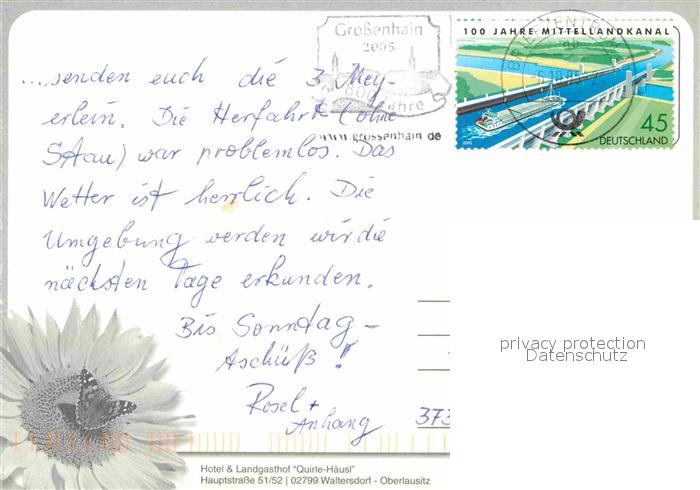 Großenhain
2005
800 Jahre
www.grossenhain.de
100 JAHRE MITTELLANDKANAL
BRIEFZENTRUM
45
DEUTSCHLAND
2005
...senden euch die 3 Mey-
erlein. Die Herfahrt (ohne
Stau) war problemlos. Das
Wetter ist herrlich. Die
Umgebung werden wir die
nächsten Tage erkunden.
Bis Sonntag -
Aschüß!
Rosel +
Anhang
373
privacy protection
Datenschutz
Hotel & Landgasthof "Quirle-Häusl"
Hauptstraße 51/52 | 02799 Waltersdorf - Oberlausitz